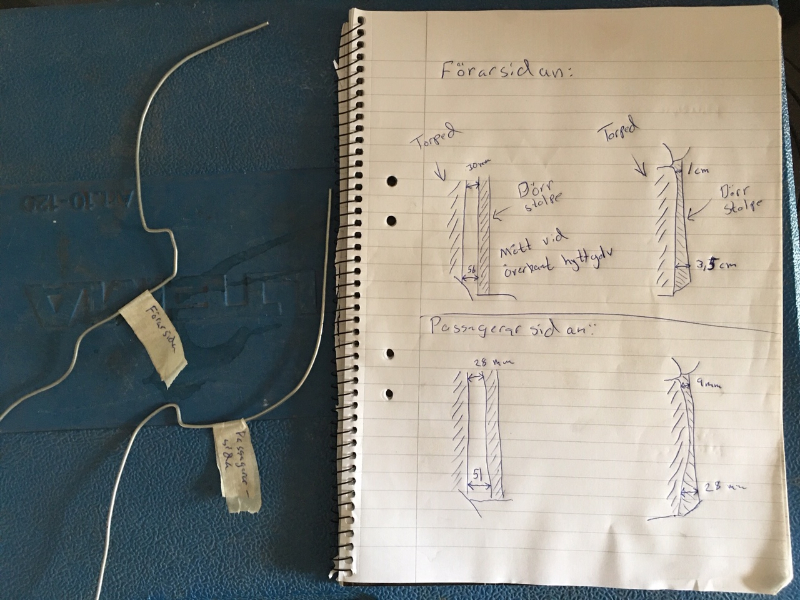 Förarsidan:
Torped
30mm
Dörr
stolpe
Mått vid
överkant hyttgolv
56
Torped
1cm
Dörr
stolpe
3,5cm
Passagerarsidan:
28 mm
51
9mm
28 mm
Förarsidan
Passagerar-
sidan